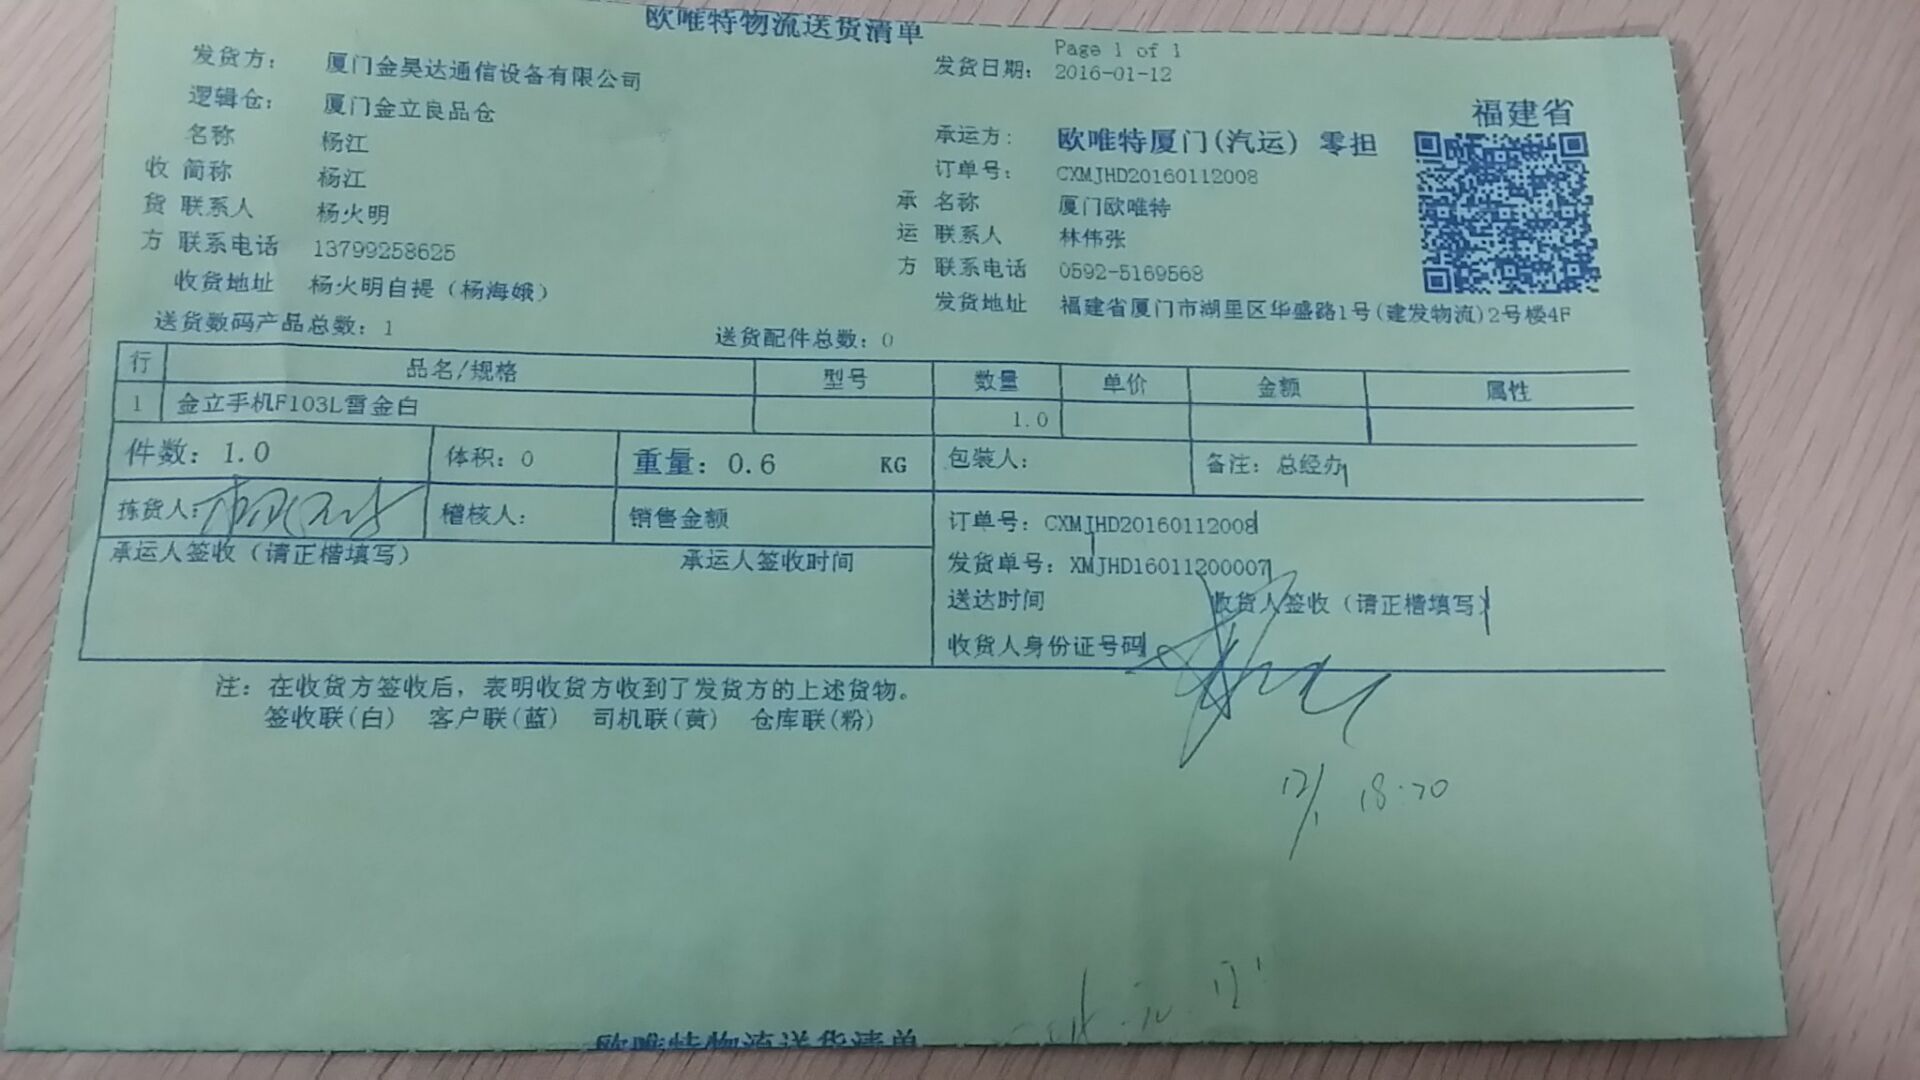 欧唯特物流送货清单
Page 1 of 1
发货方: 厦门金昊达通信设备有限公司
发货日期: 2016-01-12
逻辑仓: 厦门金立良品仓
福建省
名称 杨江
承运方: 欧唯特厦门(汽运) 零担
收 简称 杨江
订单号: CXMJHD20160112008
货 联系人 杨火明
承 名称 厦门欧唯特
方 联系电话 13799258625
运 联系人 林伟张
收货地址 杨火明自提(杨海娥)
方 联系电话 0592-5169568
发货地址 福建省厦门市湖里区华盛路1号(建发物流)2号楼4F
送货数码产品总数: 1 送货配件总数: 0
行 品名/规格 型号 数量 单价 金额 属性
1 金立手机F103L雪金白 1.0
件数: 1.0 体积: 0 重量: 0.6 KG 包装人: 备注: 总经办
拣货人: 稽核人: 销售金额
订单号: CXMJHD20160112008
承运人签收(请正楷填写) 承运人签收时间
发货单号: XMJHD16011200007
送达时间 收货人签收(请正楷填写)
收货人身份证号码
注: 在收货方签收后, 表明收货方收到了发货方的上述货物。
签收联(白) 客户联(蓝) 司机联(黄) 仓库联(粉)
12/1 18:20
欧唯特物流送货清单